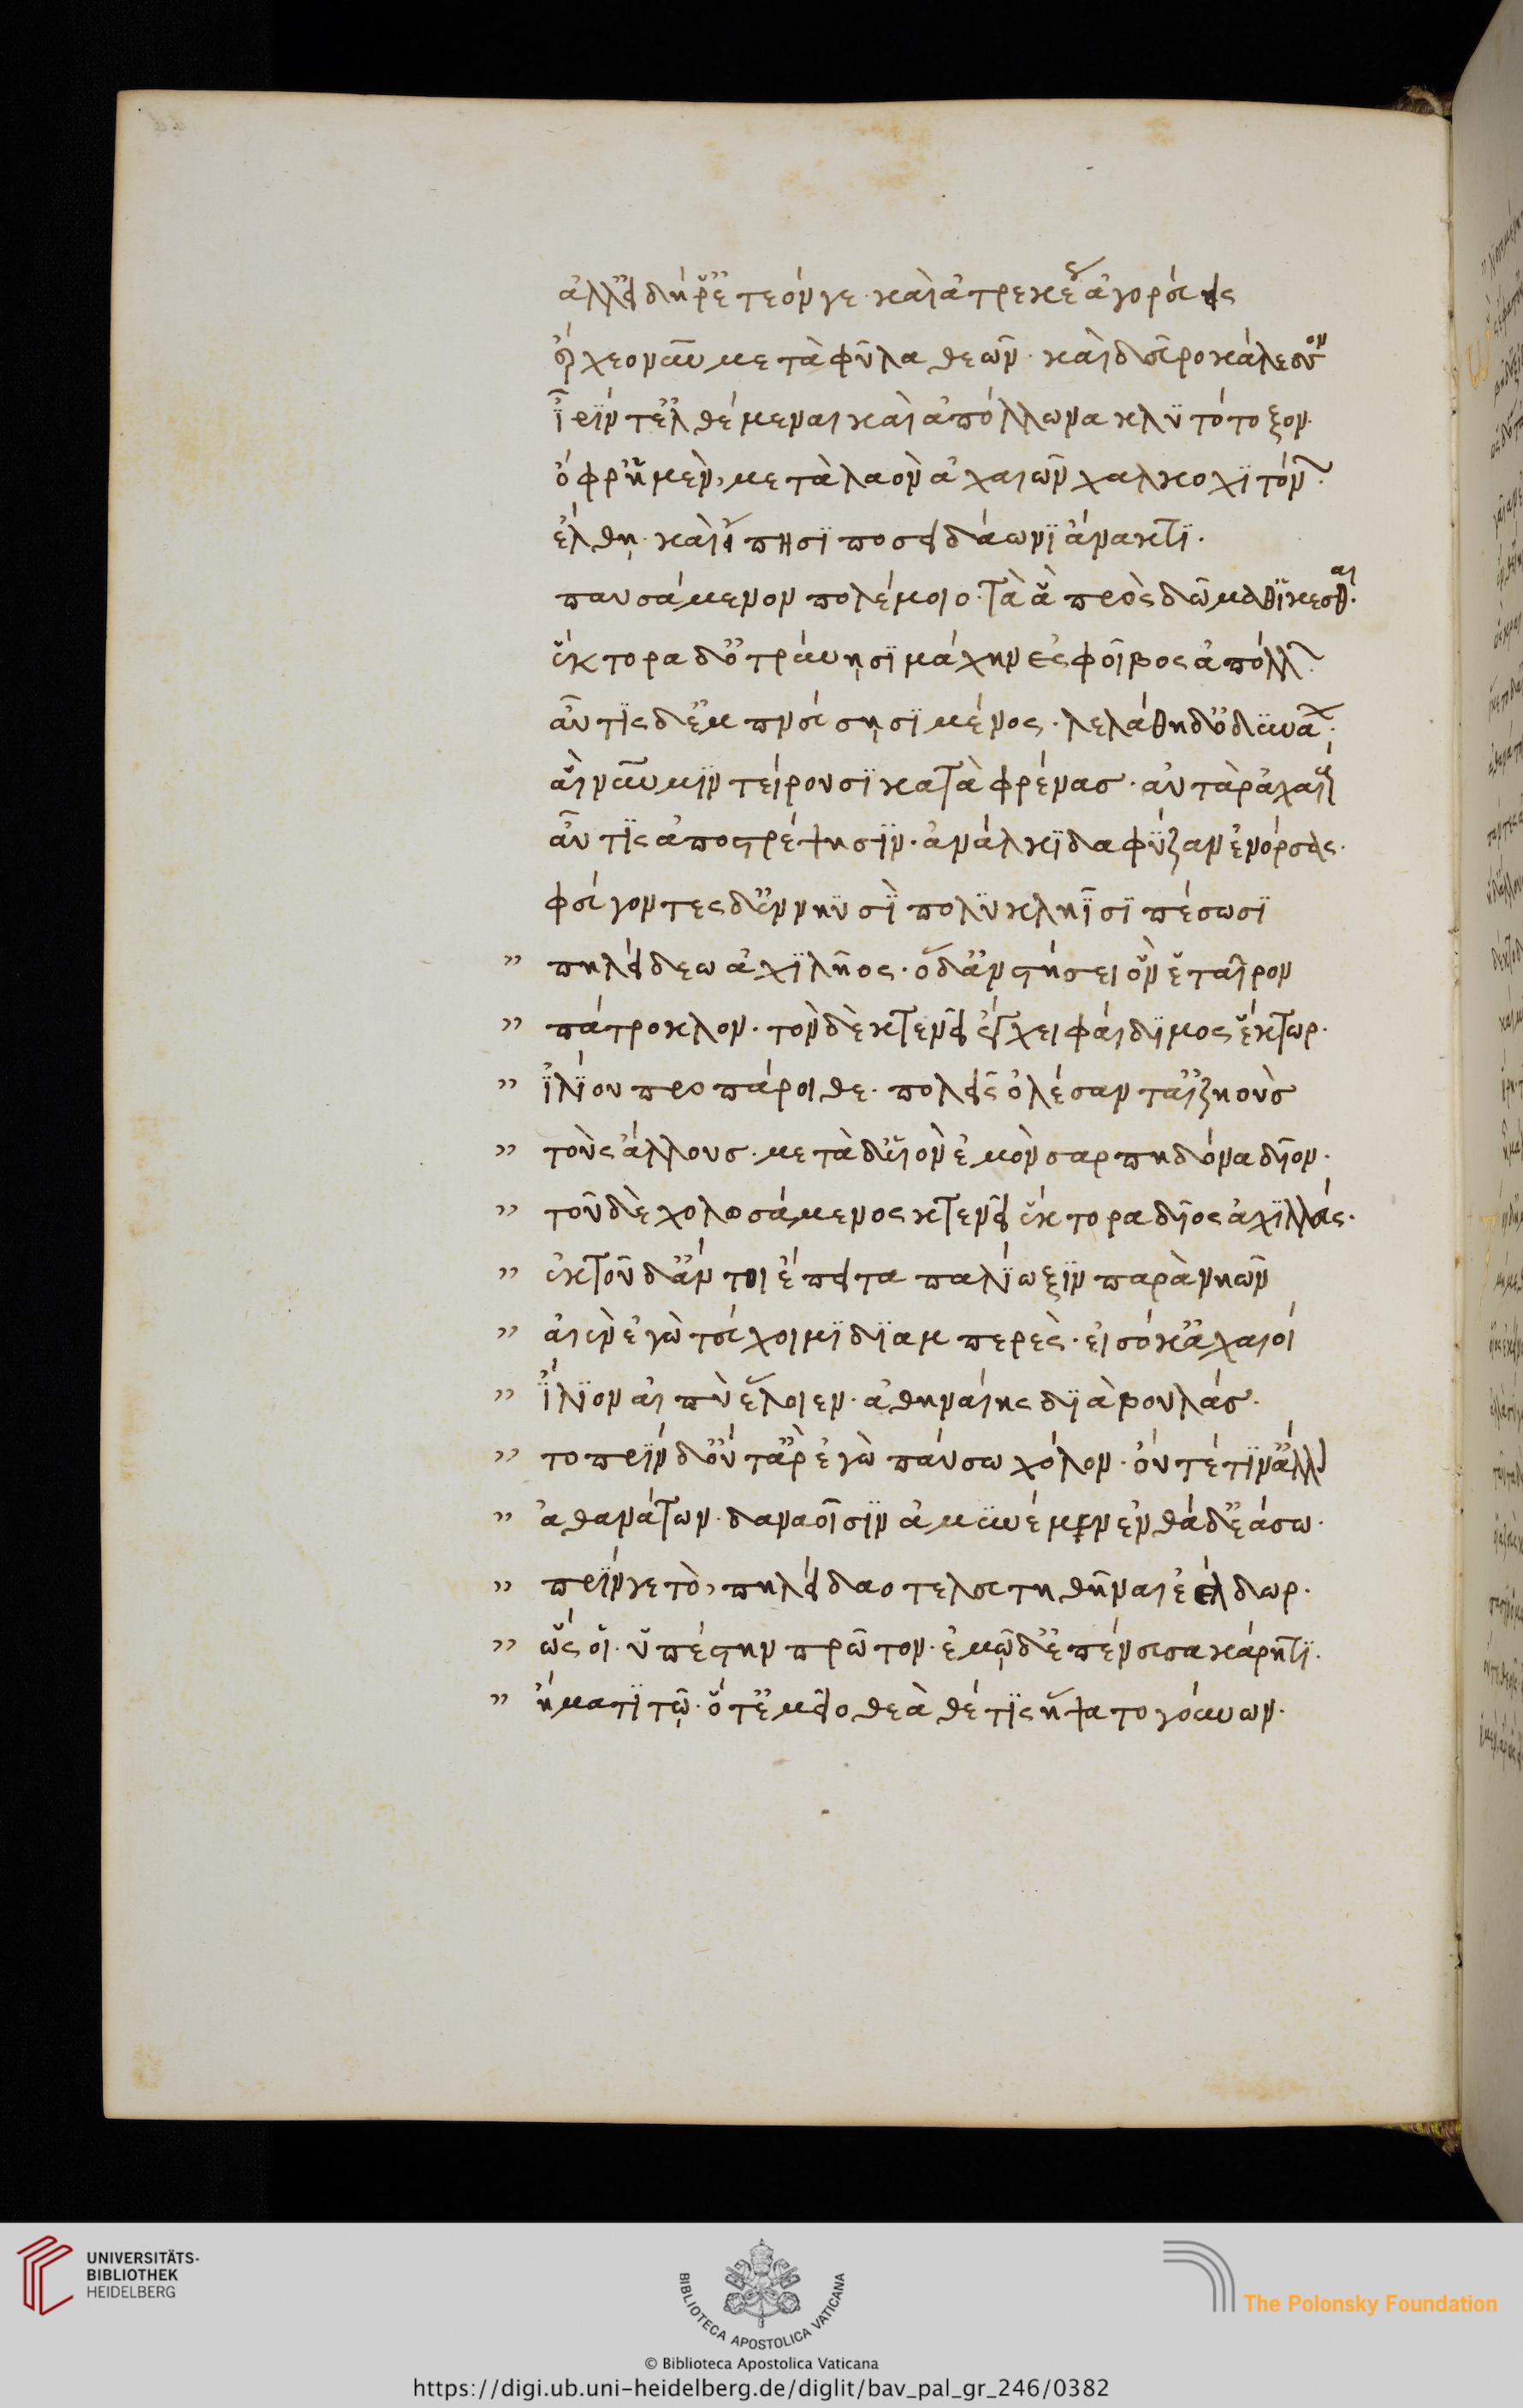 ἀλλ' εἰ δή ῥ' ἐτεόν γε· καὶ ἀτρεκέως ἀγορεύεις
ἔρχεο νῦν μετὰ φῦλα θεῶν· καὶ δεῦρο κάλεσσον
ἶρίν τ' ἐλθέμεναι καὶ ἀπόλλωνα κλϋτότοξον·
ὄφρ' ἡ μὲν, μετὰ λαὸν ἀχαιῶν χαλκοχϊτόνων·
ἔλθῃ· καὶ εἴπησϊ ποσειδάωνϊ ἄνακτϊ·
παυσάμενον πολέμοιο· τὰ ἃ πρὸς δῶμαθ' ἵκεσθαι·
ἕκτορα δ' ὀτρύνῃσϊ μάχην ἐς φοῖβος ἀπόλλων·
αὖτϊς δ' ἐμπνεύσῃσϊ μένος· λελάθη δ' ὀδϋνάων·
αἳ νῦν μϊν τείρουσϊ κατὰ φρένας· αὐτὰρ ἀχαιοὺς
αὖτϊς ἀποστρέψησϊν· ἀνάλκϊδα φύζαν ἐνόρσας·
φεύγοντες δ' ἐν νηϋσὶ πολϋκλήϊσϊ πέσωσϊ
" πηλείδεω ἀχϊλῆος· ὁ δ' ἀνστήσει ὃν ἑταῖρον
" πάτροκλον· τὸν δὲ κτενεῖ ἔγχει φαίδϊμος ἕκτωρ·
" ἰλίου προπάροιθε· πολεῖς ὀλέσαντ' αἰζηοὺς
" τοὺς ἄλλους· μετὰ δ' υἱὸν ἐμὸν σαρπηδόνα δῖον·
" τοῦ δὲ χολωσάμενος κτενεῖ ἕκτορα δῖος ἀχϊλλεύς·
" ἐκ τοῦ δ' ἄν τοι ἔπειτα παλίωξϊν παρὰ νηῶν
" αἰὲν ἐγὼ τεύχοιμϊ δϊαμπερὲς· εἰσόκ' ἀχαιοί
" ἴλϊον αἰπὺ ἕλοιεν· ἀθηναίης δϊὰ βουλάς·
" τοπρίν δ' οὔτ' ἂρ ἐγὼ παύσω χόλον· οὔτέ τϊν' ἄλλον
" ἀθανάτων· δαναοῖσϊν ἀμϋνέμεν ἐνθάδ' ἐάσω·
" πρίν γε τὸ, πηλείδαο τελευτηθῆναι ἐέλδωρ·
" ὥς οἱ· ὑπέστην πρῶτον· ἐμῷ δ' ἐπένευσα κάρητϊ·
" ἤματϊ τῷ· ὅτ' ἐμεῖο θεὰ θέτϊς ἥψατο γούνων·
UNIVERSITÄTS-
BIBLIOTHEK
HEIDELBERG
BIBLIOTECA APOSTOLICA VATICANA
The Polonsky Foundation
© Biblioteca Apostolica Vaticana
https://digi.ub.uni-heidelberg.de/diglit/bav_pal_gr_246/0382